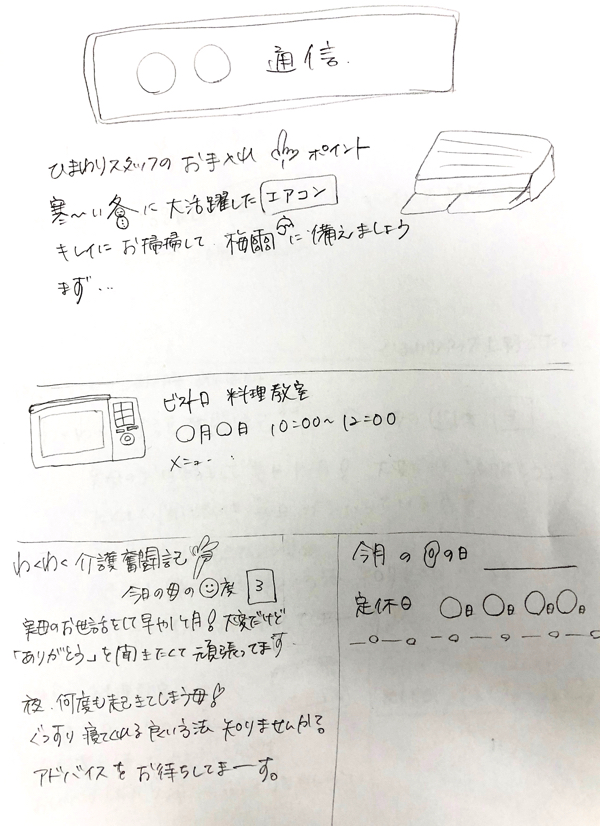 ○○ 通信.
ひまわりスタッフの お手入れ ポイント
寒〜い冬に 大活躍した エアコン
キレイに お掃掃して 梅雨に 備えましょう
まず...
ビストロ 料理教室
○月○日 10:00〜12:00
メニュー...
わくわく 介護奮闘記
今日の母の 度 3
実母のお世話をして早や1ヶ月! 大変だけど
「ありがとう」を聞きたくて 頑張ってます
夜、何度も起きてしまう母!
ぐっすり 寝てくれる良い方法 知りませんか?
アドバイスを お待ちしてまーす。
今月 の の日
定休日 ○日 ○日 ○日 ○日